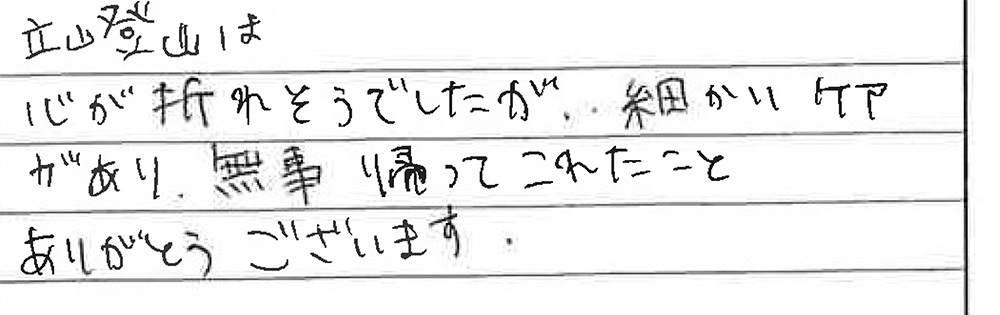 立山登山は
心が折れそうでしたが、細かいケア
があり、無事帰ってこれたこと
ありがとうございます.